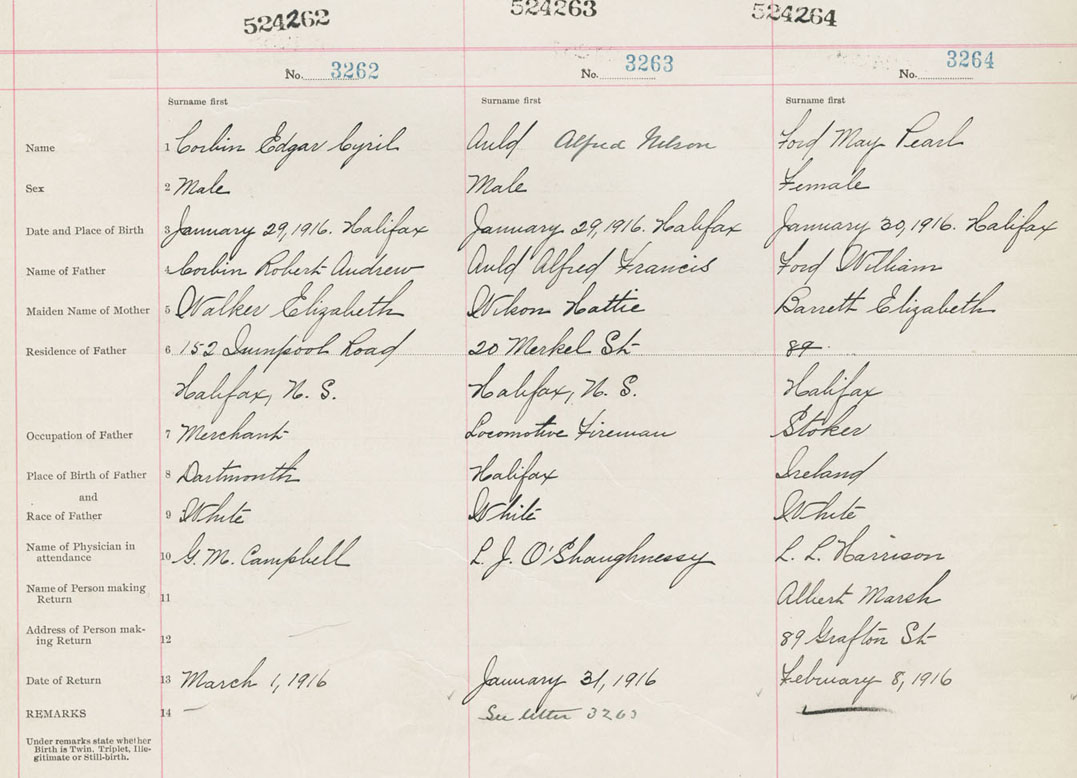 524262 524263 524264
No. 3262 No. 3263 No. 3264
Surname first Surname first Surname first
Name 1 Corbin Edgar Cyril Auld Alfred Nelson Ford May Pearl
Sex 2 Male Male Female
Date and Place of Birth 3 January 29, 1916. Halifax January 29, 1916. Halifax January 30, 1916. Halifax
Name of Father 4 Corbin Robert Andrew Auld Alfred Francis Ford William
Maiden Name of Mother 5 Walker Elizabeth Wilson Hattie Barrett Elizabeth
Residence of Father 6 152 Road 20 Merkel St 89
Halifax, N. S. Halifax, N. S. Halifax
Occupation of Father 7 Merchant Locomotive Fireman Stoker
Place of Birth of Father 8 Dartmouth Halifax Ireland
and
Race of Father 9 White White White
Name of Physician in
attendance 10 G. M. Campbell L. J. O'Shaughnessy L. L. Harrison
Name of Person making
Return 11 Albert Marsh
Address of Person mak-
ing Return 12 89 Grafton St
Date of Return 13 March 1, 1916 January 31, 1916 February 8, 1916
REMARKS 14 — See letter 3263
Under remarks state whether
Birth is Twin, Triplet, Ille-
gitimate or Still-birth.